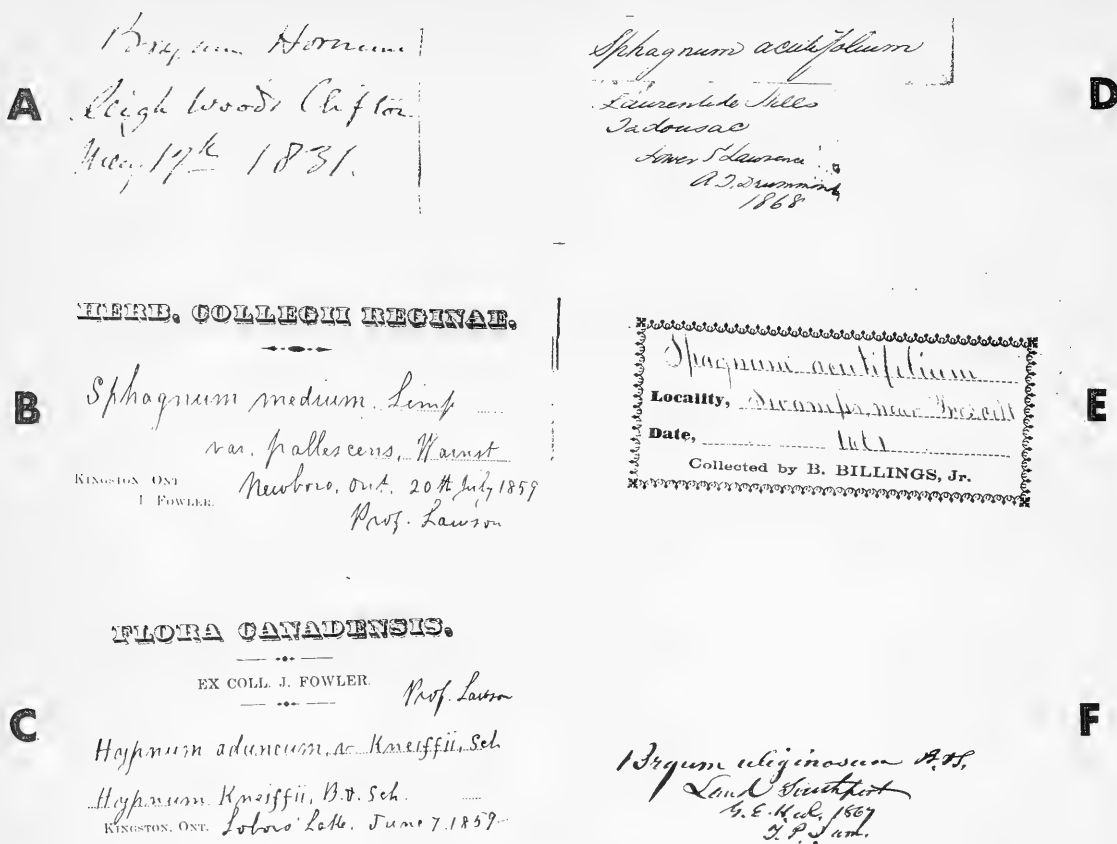 A
Bryum Hornum
Leigh Woods Clifton
May 17th 1831.
B
HERB. COLLEGII REGINAE.
Sphagnum medium. Limp
var. pallescens, Warnst
KINGSTON ONT
J FOWLER.
Newboro, Ont. 20th July 1859
Prof. Lawson
C
FLORA CANADENSIS.
EX COLL. J. FOWLER.
Prof. Lawson
Hypnum aduncum, v Kneiffii, Sch
Hypnum Kneiffii, B.&. Sch.
KINGSTON, ONT. Loboro' Lake. June 7. 1859
D
Sphagnum acutifolium
Laurentide Hills
Tadousac
Lower St Lawrence
A. T. Drummond
1868
E
Spagnum acutifilium
Locality, Swamps, near Prescott
Date,
Collected by B. BILLINGS, Jr.
F
Bryum uliginosum
Southport
1867